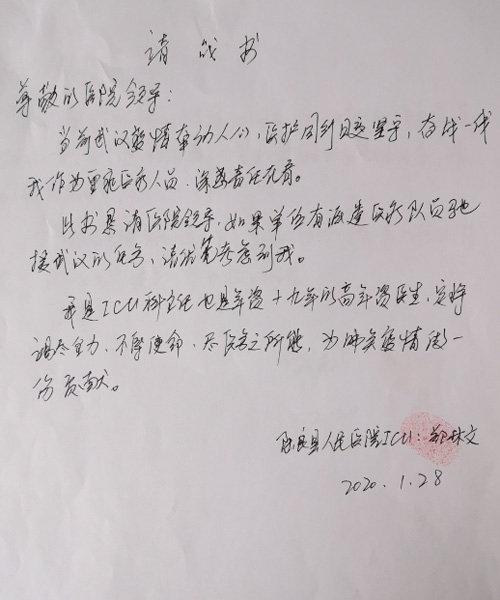 请战书
尊敬的医院领导：
当前武汉疫情牵动人心，医护同行日夜坚守，奋战一线
我作为重症医务人员，深感责任在肩。
此书恳请医院领导，如果单位有派遣医务队员驰
援武汉的任务，请优先考虑到我。
我是ICU科主任也是年资十九年的高年资医生，定将
竭尽全力，不辱使命，尽医务之所能，为肺炎疫情做一
份贡献。
县人民医院ICU：郑林文
2020.1.28